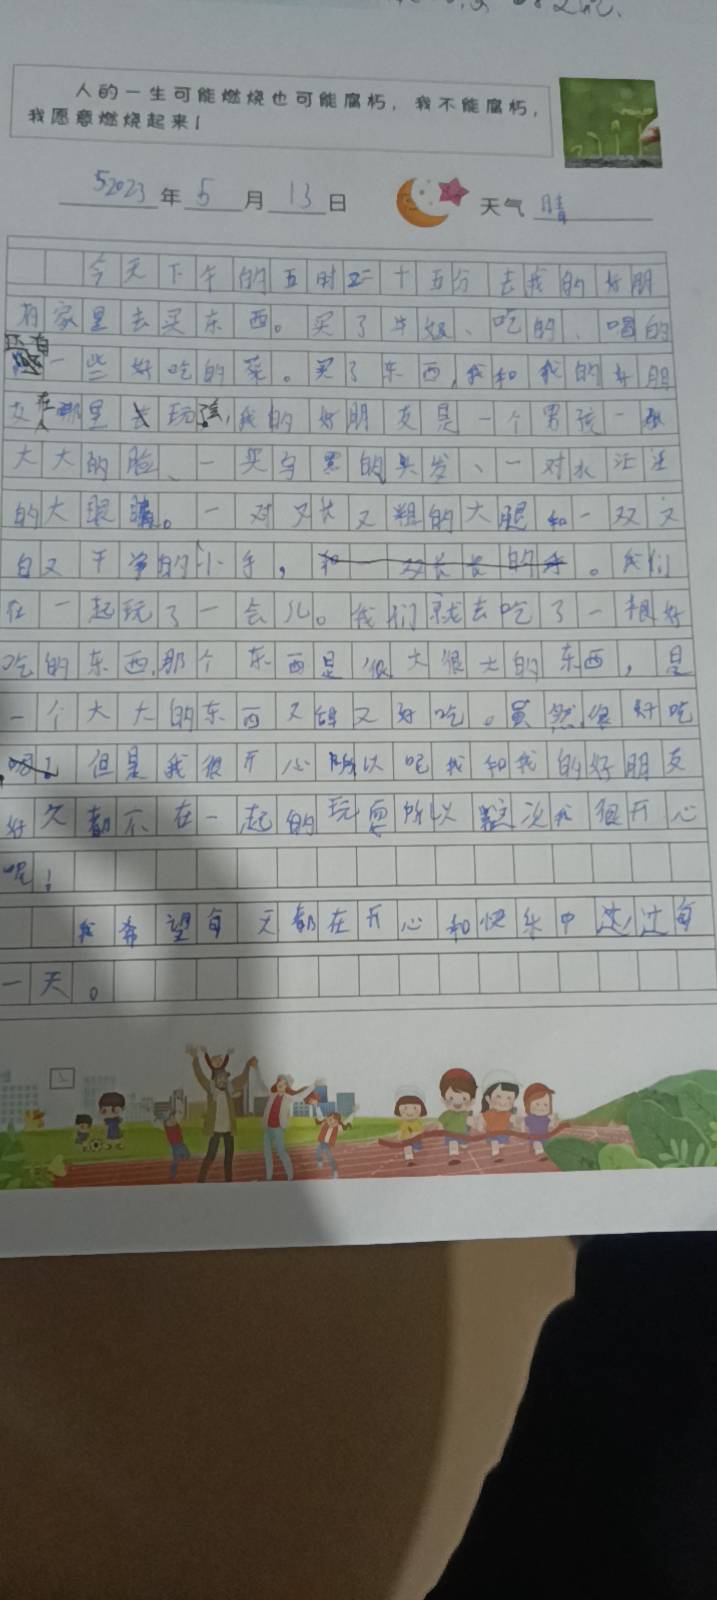 人的一生可能燃烧也可能腐朽，我不能腐朽，
我愿意燃烧起来！
52023年5月13日 天气 晴
今天下午的五时二十五分去我的好朋
有家里去买东西。买了牛奶、吃的、喝的
还有一些好吃的菜。买了东西，我和我的好朋
友在那里玩，我的好朋友是一个男孩一张
大大的脸、一头乌黑的头发、一对水汪汪
的大眼睛。一对又长又粗的大腿和一双又
白又干净的小手，。我们
在一起玩了一会儿。我们就去吃了一根好
吃的东西，那个东西是很大很大的东西，是
一个大大的东西又甜又好吃。虽然很好吃
但是我很开心所以呢我和我的好朋友
好久都不在一起的玩耍所以这次我很开心
呢！
我希望每天都在开心和快乐中过每
一天。